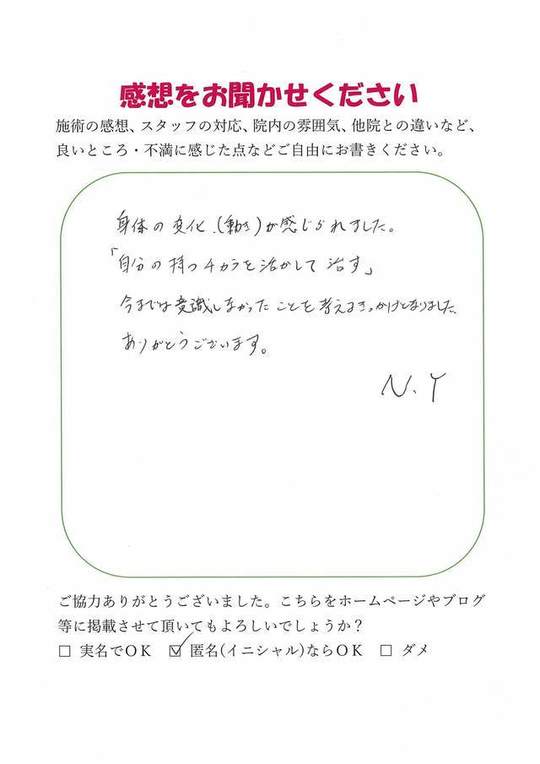 感想をお聞かせください
施術の感想、スタッフの対応、院内の雰囲気、他院との違いなど、
良いところ・不満に感じた点などご自由にお書きください。
身体の変化、(動き)が感じられました。
「自分の持つチカラを活かして治す」
今までは意識しなかったことを考えるきっかけとなりました。
ありがとうございます。
N.Y
ご協力ありがとうございました。こちらをホームページやブログ
等に掲載させて頂いてもよろしいでしょうか？
□ 実名でOK ☑ 匿名(イニシャル)ならOK □ ダメ